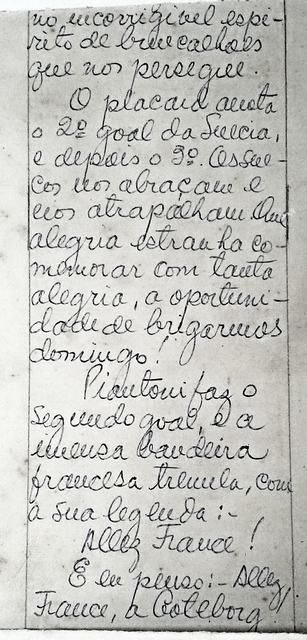 no incorrigivel espi-
rito de brincalhões
que nos persegue.
O placard anota
o 2º goal da Suecia,
e depois o 3º. Os sue-
cos nos abraçam e
nos atrapalham. Que
alegria estranha co-
memorar com tanta
alegria, a oportuni-
dade de brigarmos
domingo!
Piantoni faz o
segundo goal, e a
imensa bandeira
francesa tremula, com
a sua legenda:-
Allez France!
E eu penso:- Allez,
France, a Goteborg!